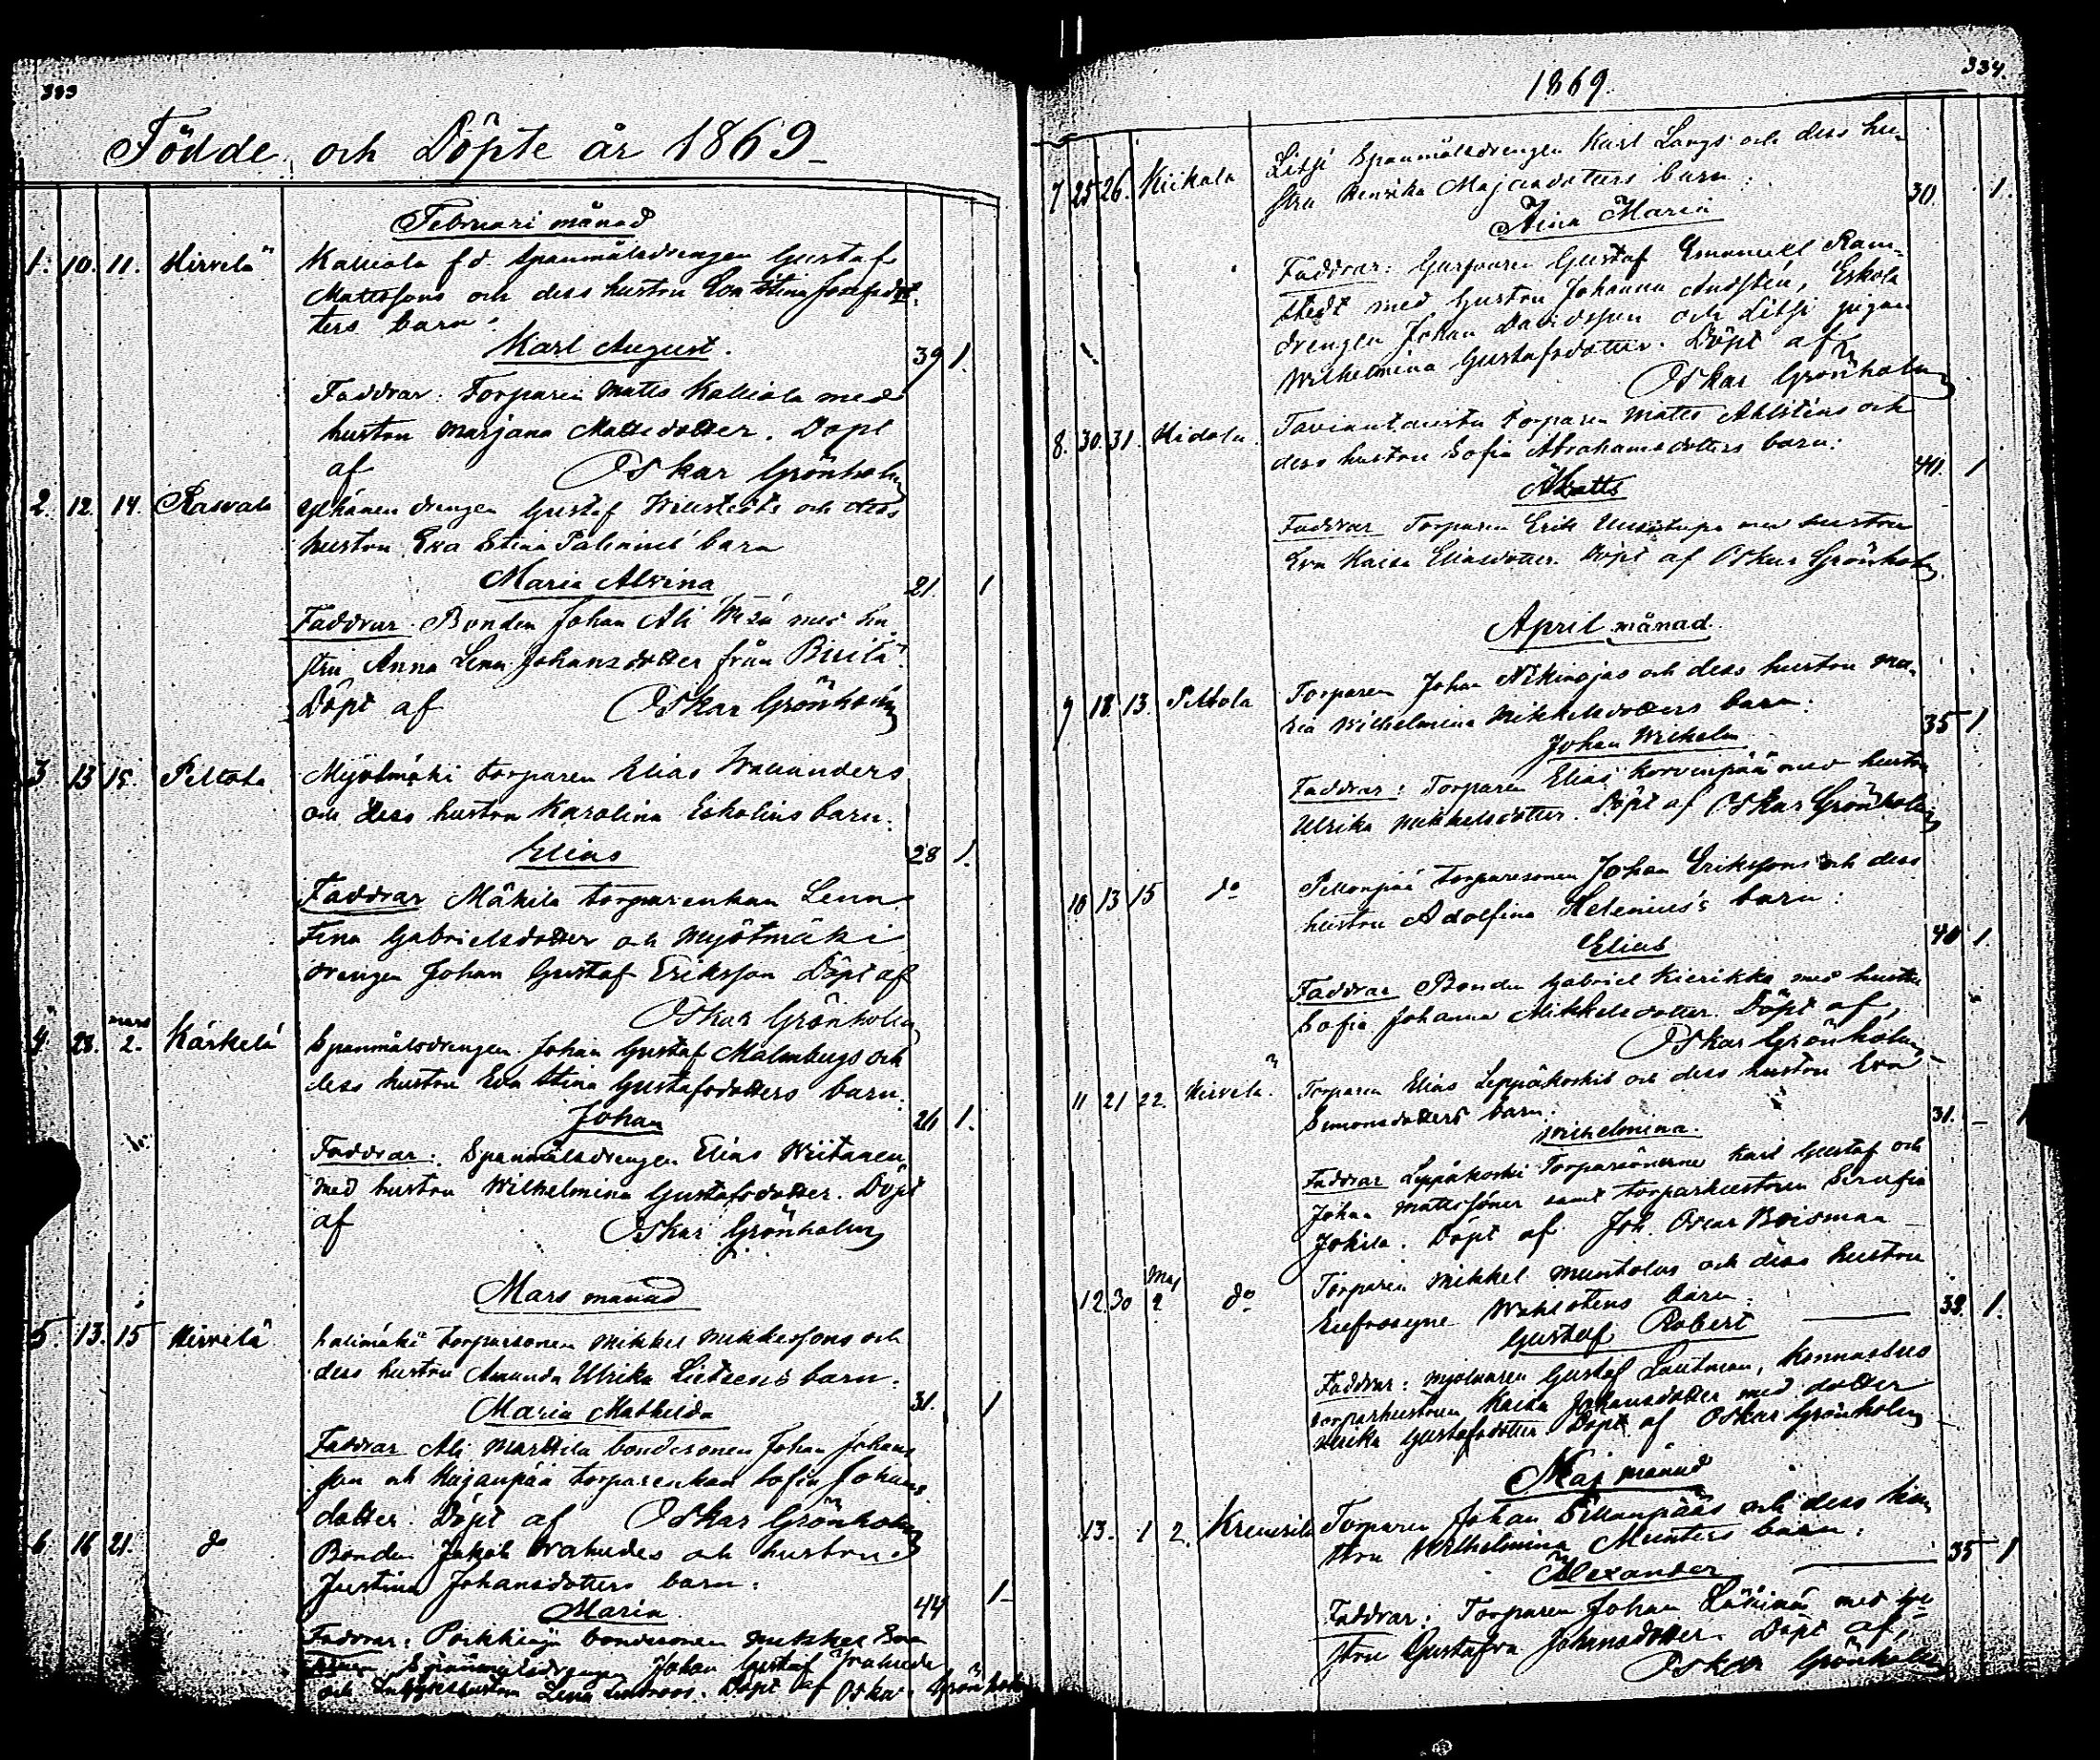 333
Födde och Döpte år 1869
Februari månad
1. 10. 11. Hirvelä Kalliola f.d. spanmålsdrengen Gustaf
Mattssons och dess hustru Eva Stina Josefsdot-
ters barn:
Karl August. 39 1.
Faddrar: Torparen Matts Kalliola med
hustru Marjana Mattsdotter. Döpt
af Oskar Grönholm
2. 12. 14. Rasvala drengen Gustaf och dess
hustru Eva Stina Palinins barn
Maria Alvina 21 1
Faddrar Bonden Johan Ali med hu-
stru Anna Lena Johansdotter från
Döpt af Oskar Grönholm
3. 13 15. Peltola Myötmäki torparen Elias Walianders
och dess hustru Karolina Eskolins barn.
Elias 28 1.
Faddrar Mäkilä torparenkan Lena
Tina Gabrielsdotter och Myötmäki
drengen Johan Gustaf Eriksson Döpt af
Oskar Grönholm
4. 28. mars 2. Kärkelä Spanmålsdrengen Johan Gustaf Malmbergs och
dess hustru Eva Stina Gustafsdotters barn.
Johan 26 1.
Faddrar: Spanmålsdrengen Elias Wiitanen
med hustru Wilhelmina Gustafsdotter. Döpt
af Oskar Grönholm
Mars månad
5. 13. 15 Hirvelä torparsonen Mikkel Mikkelssons och
dess hustru Amanda Ulrika barn.
Maria Mathilda 31. 1
Faddrar Ali Marttila bondesonen Johan Johans-
son och torparenkan Sofia Johans-
dotter. Döpt af Oskar Grönholm
6 16 21. do Bonden Jakob och hustru
Justina Johansdotters barn:
Maria 44 1
Faddrar: bondesonen Mikkel
Spanmålsdrengen Johan Gustaf
och Lena Lindroos. Döpt af Oskar Grönholm
1869 334.
7 25 26. Kiikala Litsi Spanmålsdrengen Karl Longs och dess hu-
stru Henrika Majasdotters barn: 30. 1.
Aina Maria
Faddrar: Gustaf Emanuel Ram-
stedt med hustru Johanna Eskola
drengen Johan Davidsson och Litsi pigan
Wilhelmina Gustafsdotter. Döpt af
Oskar Grönholm
8. 30. 31. Hidola torparen Matts Ahlsténs och
dess hustru Sofia Abrahamsdotters barn: 40. 1
Matts
Faddrar Torparen Erik med hustru
Eva Kaisa Eliasdotter. Döpt af Oskar Grönholm
April månad
9 18. 13. Peltola Torparen Johan Nikinojas och dess hustru Ma-
ria Wilhelmina Mikkelsdotters barn: 35 1.
Johan Wilhelm
Faddrar: Torparen Elias Korvenpää med hustru
Ulrika Mikkelsdotter. Döpt af Oskar Grönholm
10 13 15 do Pellonpää torparesonen Johan Erikssons och dess
hustru Adolfina Helenius's barn:
Elias 40 1.
Faddrar Bonden Gabriel Kierikka med hustru
Sofia Johanna Mikkelsdotter. Döpt af,
Oskar Grönholm
11 21 22. Hirvelä Torparen Elias Leppäkoskis och dess hustru Eva
Simonsdotters barn. 31. 1
Wilhelmina.
Faddrar Leppäkoski Torparsönerne Karl Gustaf och
Johan Mattssöner samt torparhustrun Serafia
Jokila. Döpt af Joh. Oscar Boisman
12 30 Maj 2 do Torparen Mikkel Muntolas och dess hustru
Eufrosyne Wahlsténs barn. 38. 1.
Gustaf Robert
Faddrar: mjölnaren Gustaf Lautman,
torparhustrun Kaisa Johansdotter med dotter
Ulrika Gustafsdotter Döpt af Oskar Grönholm
Maj månad
13. 1 2. Torparen Johan Sillanpääs och dess hu-
stru Wilhelmina Munters barn:
Alexander 35 1
Faddrar: Torparen Johan med hu-
stru Gustafva Johansdotter. Döpt af,
Oskar Grönholm